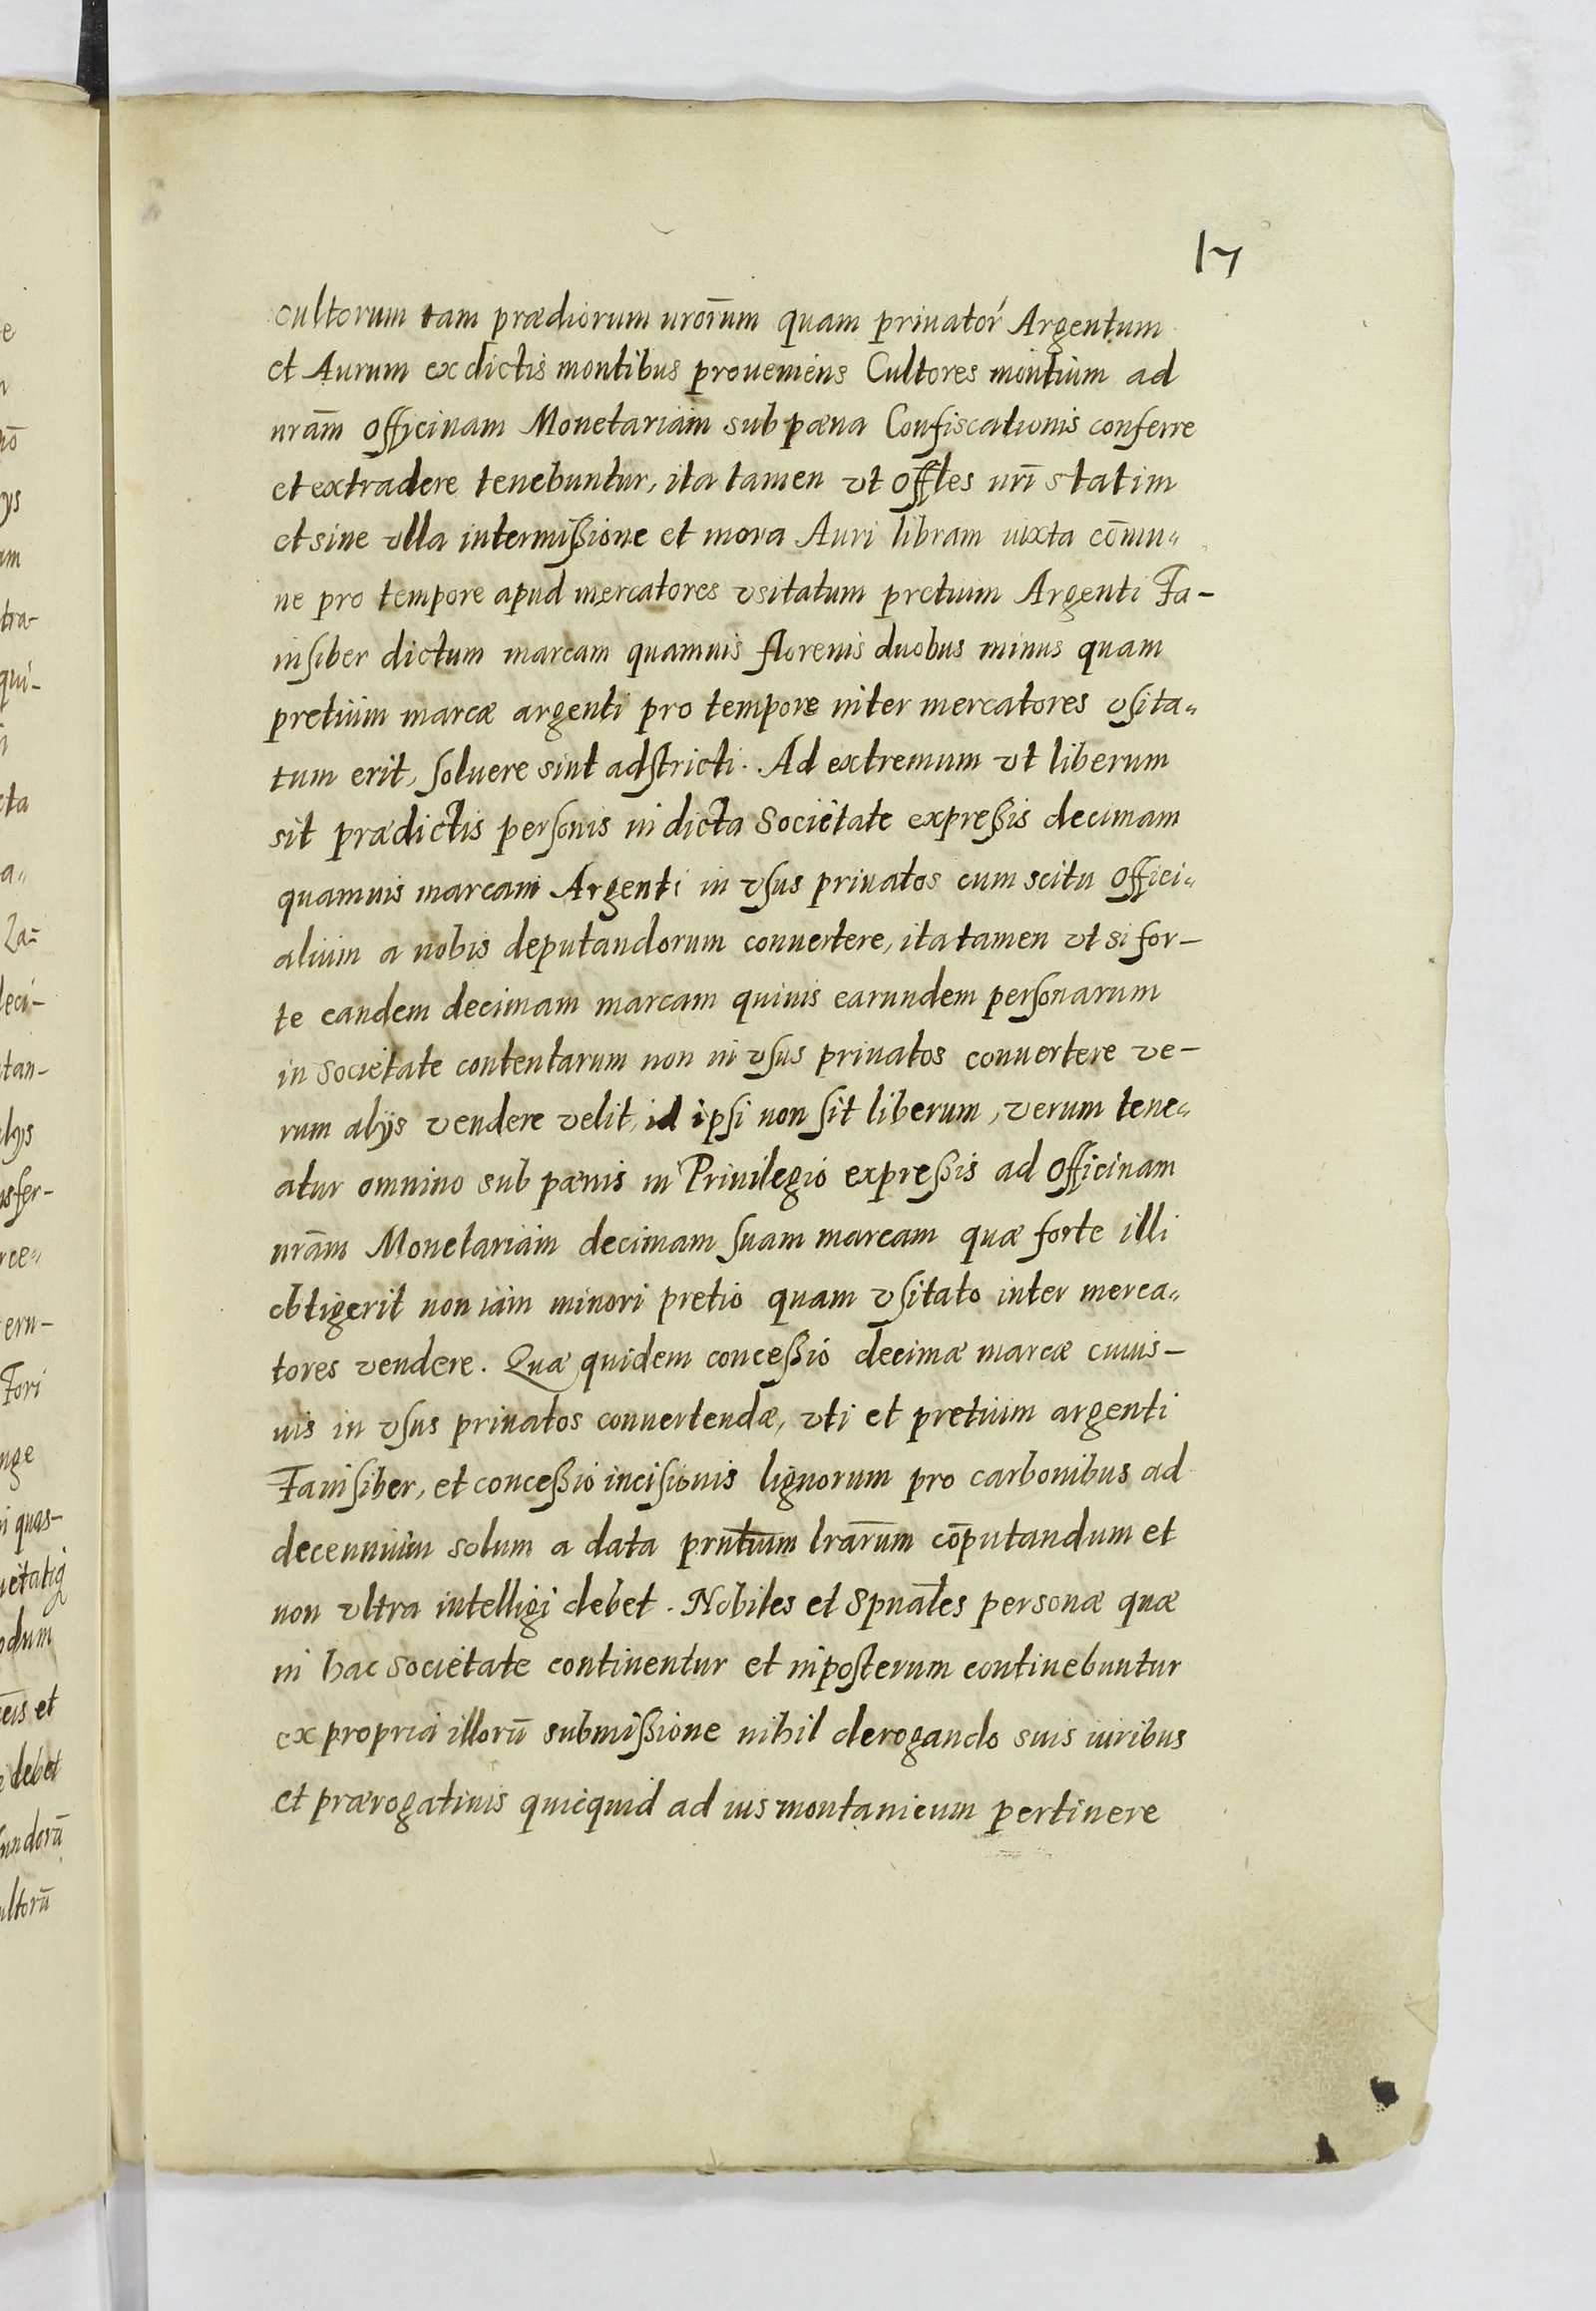 17
cultorum tam prædiorum nrōrum quam priuatoŕ Argentum
et Aurum ex dictis montibus proueniens Cultores montium ad
nrām officinam Monetariam sub pœna Confiscationis conferre
et extradere tenebuntur, ita tamen vt offles nrī statim
et sine vlla intermißione et mora Auri libram iuxta cōmu„
ne pro tempore apud mercatores vsitatum pretium Argenti Fa-
insiber dictum marcam quamuis florenis duobus minus quam
pretium marcæ argenti pro tempore inter mercatores vsita„
tum erit, soluere sint adstricti. Ad extremum vt liberum
sit prædictis personis in dicta Societate expreßis decimam
quamuis marcam Argenti in vsus priuatos cum scitu Offici„
alium a nobis deputandorum conuertere, ita tamen vt si for-
te eandem decimam marcam quiuis earundem personarum
in Societate contentarum non in vsus priuatos conuertere ve-
rum alijs vendere velit, id ipsi non sit liberum, verum tene„
atur omnino sub pœnis in Priuilegio expreßis ad Officinam
nrām Monetariam decimam suam marcam quæ forte illi
obtigerit non iam minori pretio quam vsitato inter merca„
tores vendere. Quæ quidem conceßio decimæ marcæ cuius-
uis in vsus priuatos conuertendæ, vti et pretium argenti
Fainsiber, et conceßio incisionis lignorum pro carbonibus ad
decennium solum a data prñtium lrārum cōputandum et
non vltra intelligi debet. Nobiles et Spuāles personæ quæ
in hac Societate continentur et inposterum continebuntur
ex propria illorū submißione nihil derogando suis iuribus
et prærogatiuis quicquid ad ius montanicum pertinere